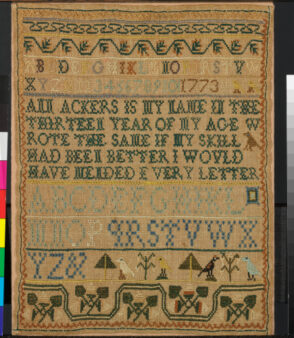 B D G IKL NO RS V
XY 1234567890 1773
ANN ACKERS IS MY NAME IN THE
THIRTEEN YEAR OF MY AGE W
ROTE THE SAME IF MY SKILL
HAD BEEN BETTER I WOULD
HAVE MENDED EVERY LETTER
ABCDEFGHIKL
MNOP QRSTVWX
YZ&